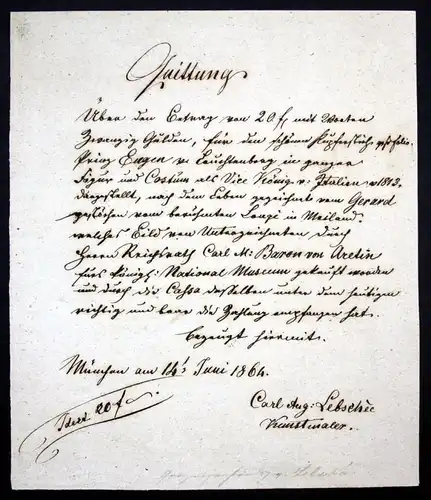 Quittung
Über den Betrag von 20 f, mit Worten
Zwanzig Gulden, für den schönen Kupferstich, groß folio.
Prinz Eugen v. Leuchtenberg in ganzer
Figur und Costüm als Vice König v. Italien v 1812,
dargestellt, nach dem Leben gezeichnet vom Gerard
gestochen vom berühmten Longi in Mailand.
welches Bild von Unterzeichneten durch
Herrn Reichsrath Carl M: Baron von Aretin
fürs Königl: National Museum gekauft worden
und durch die Cassa desselben unter dem heutigen
richtig und baar die Zahlung empfangen hat.
bezeugt hiermit.
München am 14t Juni 1864.
Carl Aug: Lebschée
Kunstmaler.
20 f